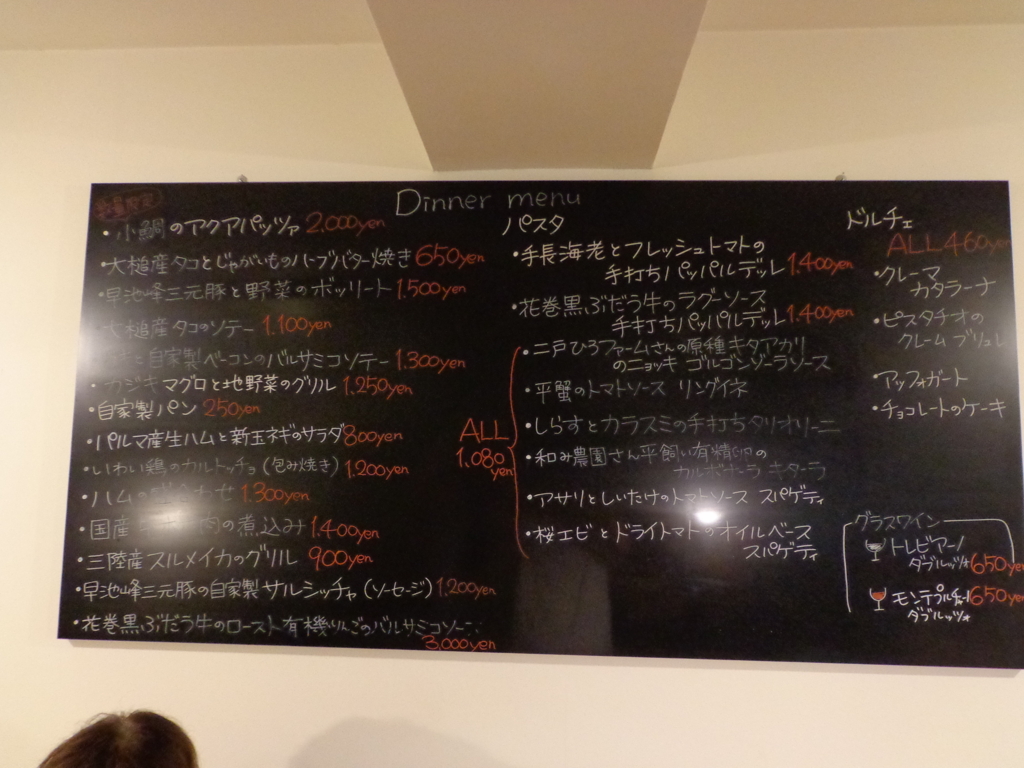 Dinner menu
・小鯛のアクアパッツァ 2.000yen
・大槌産タコとじゃがいものハーブバター焼き 650yen
・早池峰三元豚と野菜のボッリート 1.500yen
・大槌産タコのソテー 1.100yen
と自家製ベーコンのバルサミコソテー 1.300yen
・カジキマグロと地野菜のグリル 1.250yen
・自家製パン 250yen
・パルマ産生ハムと新玉ネギのサラダ 800yen
・いわい鶏のカルトッチョ(包み焼き) 1.200yen
・ハムの盛合わせ 1.300yen
・国産 肉の煮込み 1.400yen
・三陸産スルメイカのグリル 900yen
・早池峰三元豚の自家製サルシッチャ(ソーセージ) 1.200yen
・花巻黒ぶだう牛のロースト有機りんごのバルサミコソース
3.000yen
パスタ
・手長海老とフレッシュトマトの
手打ちパッパルデッレ 1.400yen
・花巻黒ぶだう牛のラグーソース
手打ちパッパルデッレ 1.400yen
ALL
1.080
yen
・二戸ひろファームさんの原種キタアカリ
のニョッキ ゴルゴンゾーラソース
・平蟹のトマトソース リングイネ
・しらすとカラスミの手打ちタリオリーニ
・和み農園さん平飼い有精卵の
カルボナーラ キターラ
・アサリとしいたけのトマトソース スパゲティ
・桜エビとドライトマトのオイルベース
スパゲティ
ドルチェ
ALL 460yen
・クレーマ
カタラーナ
・ピスタチオの
クレーム ブリュレ
・アッフォガート
・チョコレートのケーキ
グラスワイン
トレビアーノ
ダブルッツォ 650yen
モンテプルチャーノ 650yen
ダブルッツォ